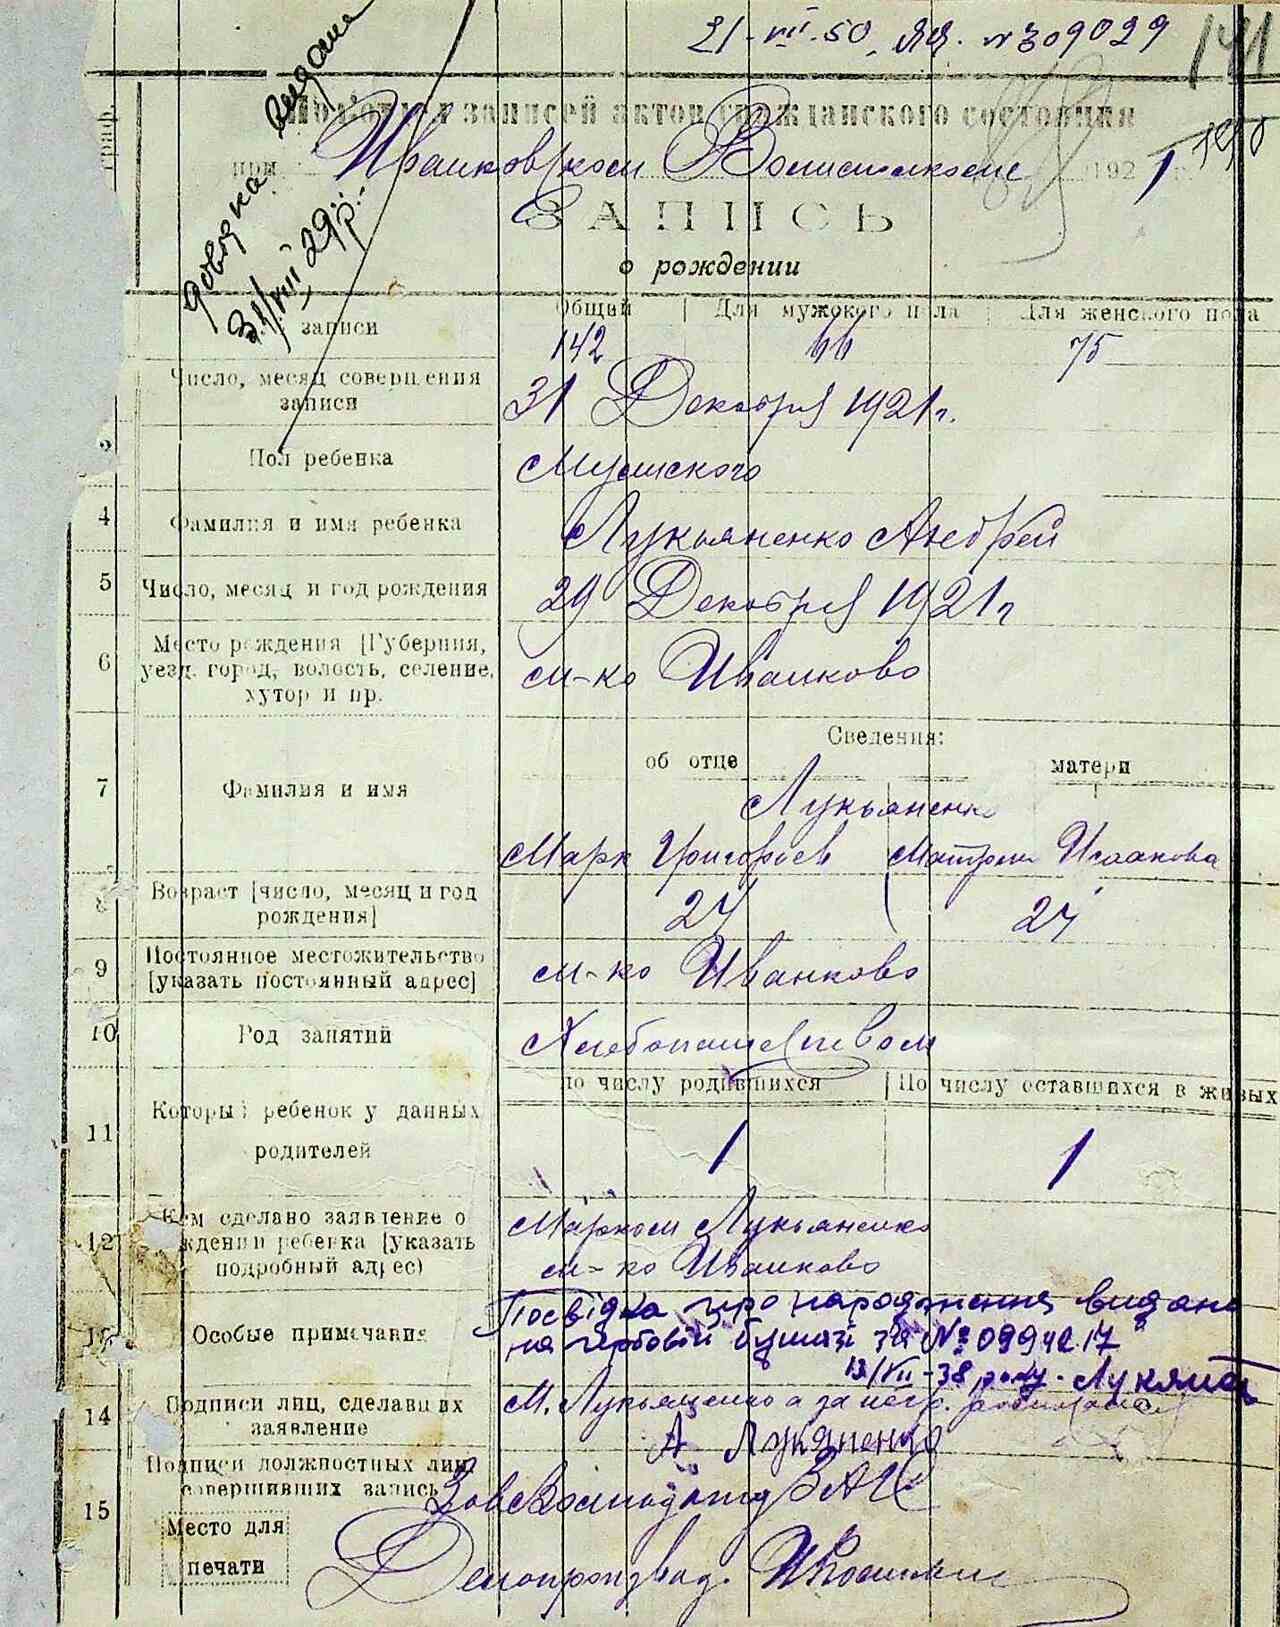 21-VII.50. ЯЯ. № 309029
141
довідка видана
31/VIII 29р.
записей актов гражданского состояния
при Иванковском Волисполкоме 1921
ЗАПИСЬ
о рождении
записи
Общий | Для мужского пола | Для женского пола
142 66 75
Число, месяц совершения записи
31 Декабря 1921г.
Пол ребенка
Мужского
4 Фамилия и имя ребенка
Лукьяненко Андрей
5 Число, месяц и год рождения
29 Декабря 1921г
6 Место рождения [Губерния, уезд, город, волость, селение, хутор и пр.
м-ко Иванково
Сведения:
об отце матери
7 Фамилия и имя
Лукьяненко
Марк Григорьев Матрена Исаакова
8 Возраст [число, месяц и год рождения]
24 24
9 Постоянное местожительство [указать постоянный адрес]
м-ко Иванково
10 Род занятий
Хлебопашеством
11 Который ребенок у данных родителей
по числу родившихся | По числу оставшихся в живых
1 1
12 Кем сделано заявление о рождении ребенка [указать подробный адрес)
Марком Лукьяненко
м-ко Иванково
13 Особые примечания
Посвідка про народження видана
на гербовій бумазі за № 099421
VII-38 року.
14 Подписи лиц, сделавших заявление
М. Лукьяненко а за негр.
А Лукяненко
15 Подписи должностных лиц, совершивших запись
ЗАГС
Место для печати
Делопроизвод.